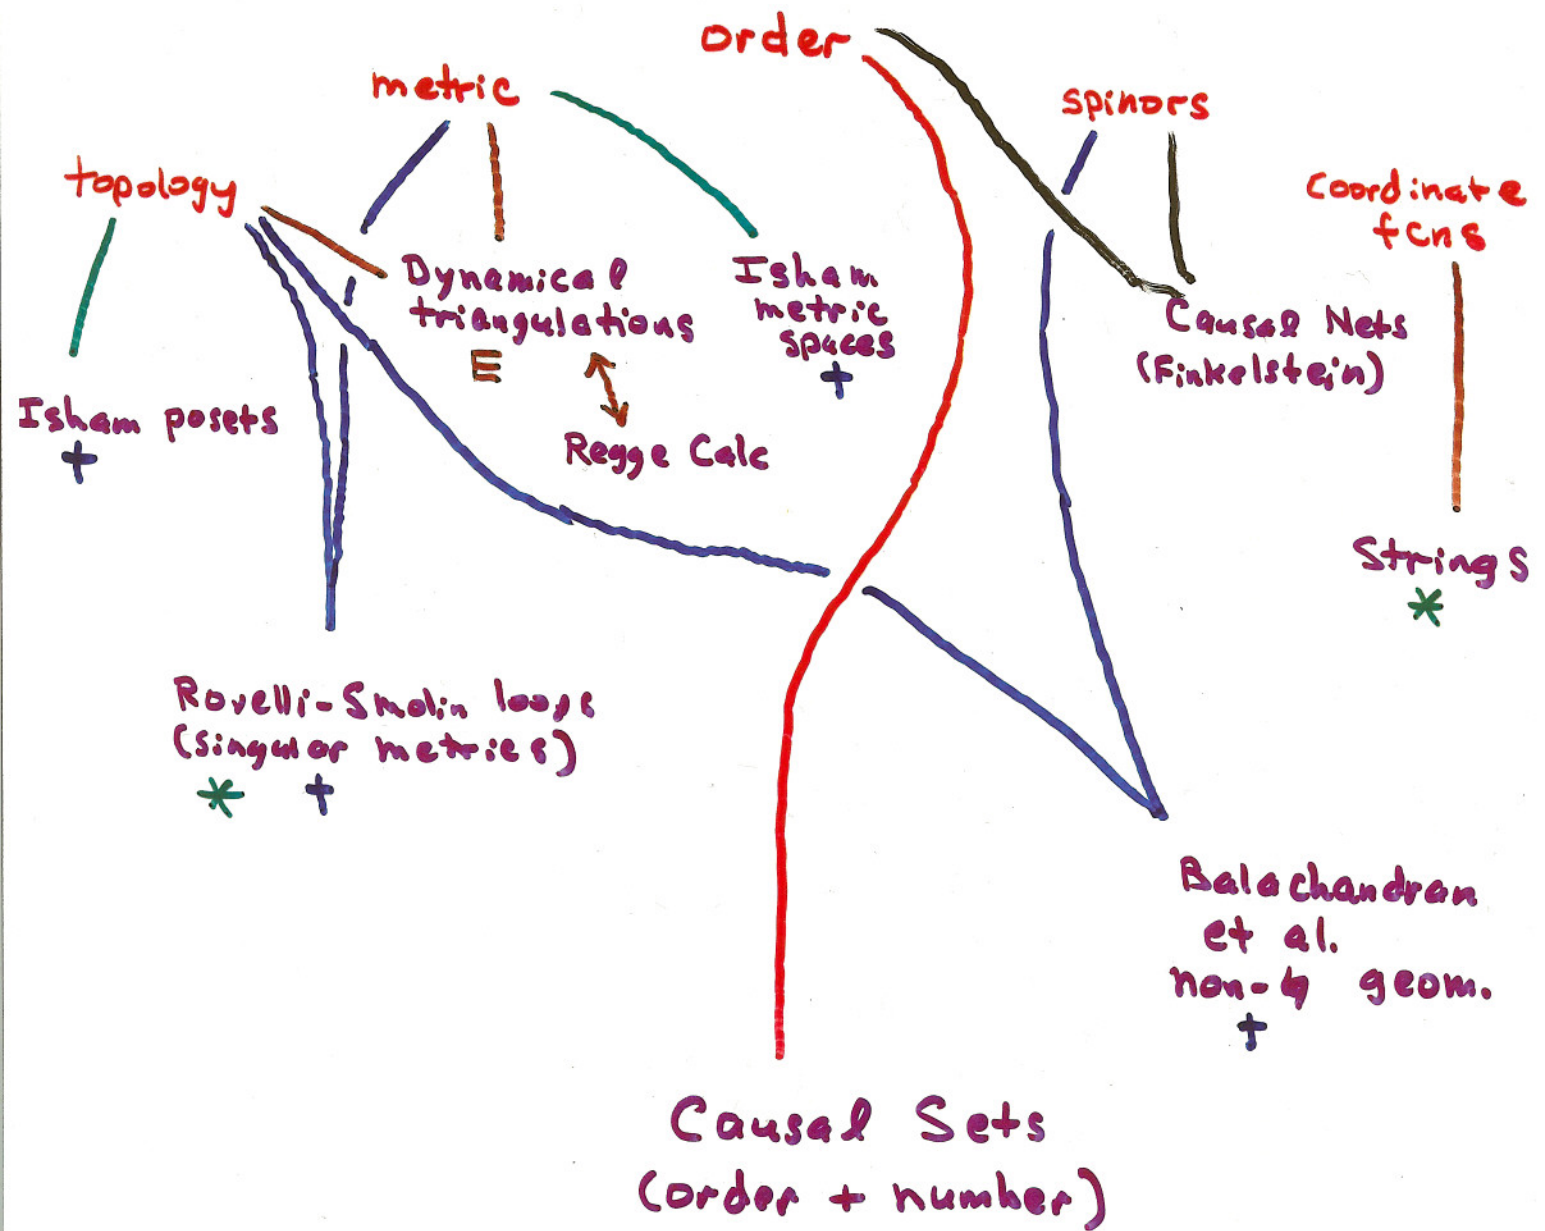 order
metric
spinors
topology
coordinate
fcns
Dynamical
triangulations
E
Isham
metric
spaces
+
Causal Nets
(Finkelstein)
Isham posets
+
Regge Calc
Strings
*
Rovelli-Smolin loops
(singular metrics)
* +
Balachandran
et al.
non- geom.
+
Causal Sets
(order + number)